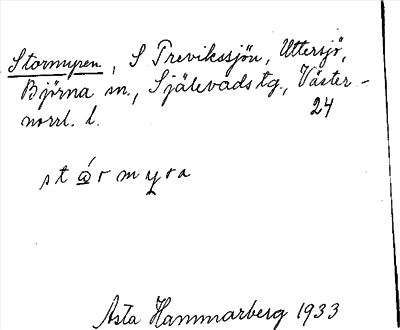 Stormyren, S Previkssjön, Uttersjö,
Björna sn., Själevads tg., Väster-
norrl. l.
24
stårmyra
Asta Hammarberg 1933